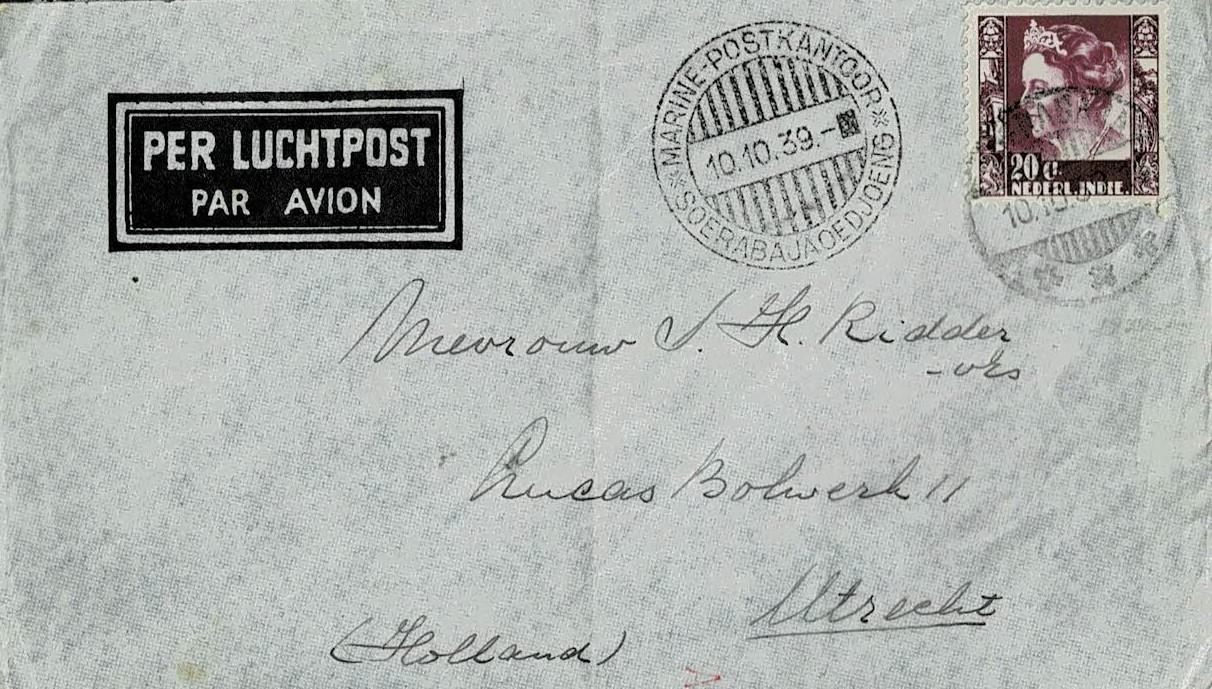 PER LUCHTPOST
PAR AVION
MARINE-POSTKANTOOR
10.10.39.-
SOERABAJAOEDJOENG
20 ct.
NEDERL. INDIE.
10.10.3
Mevrouw S. H. Ridder
Lucas Bolwerk 11
Utrecht
(Holland)